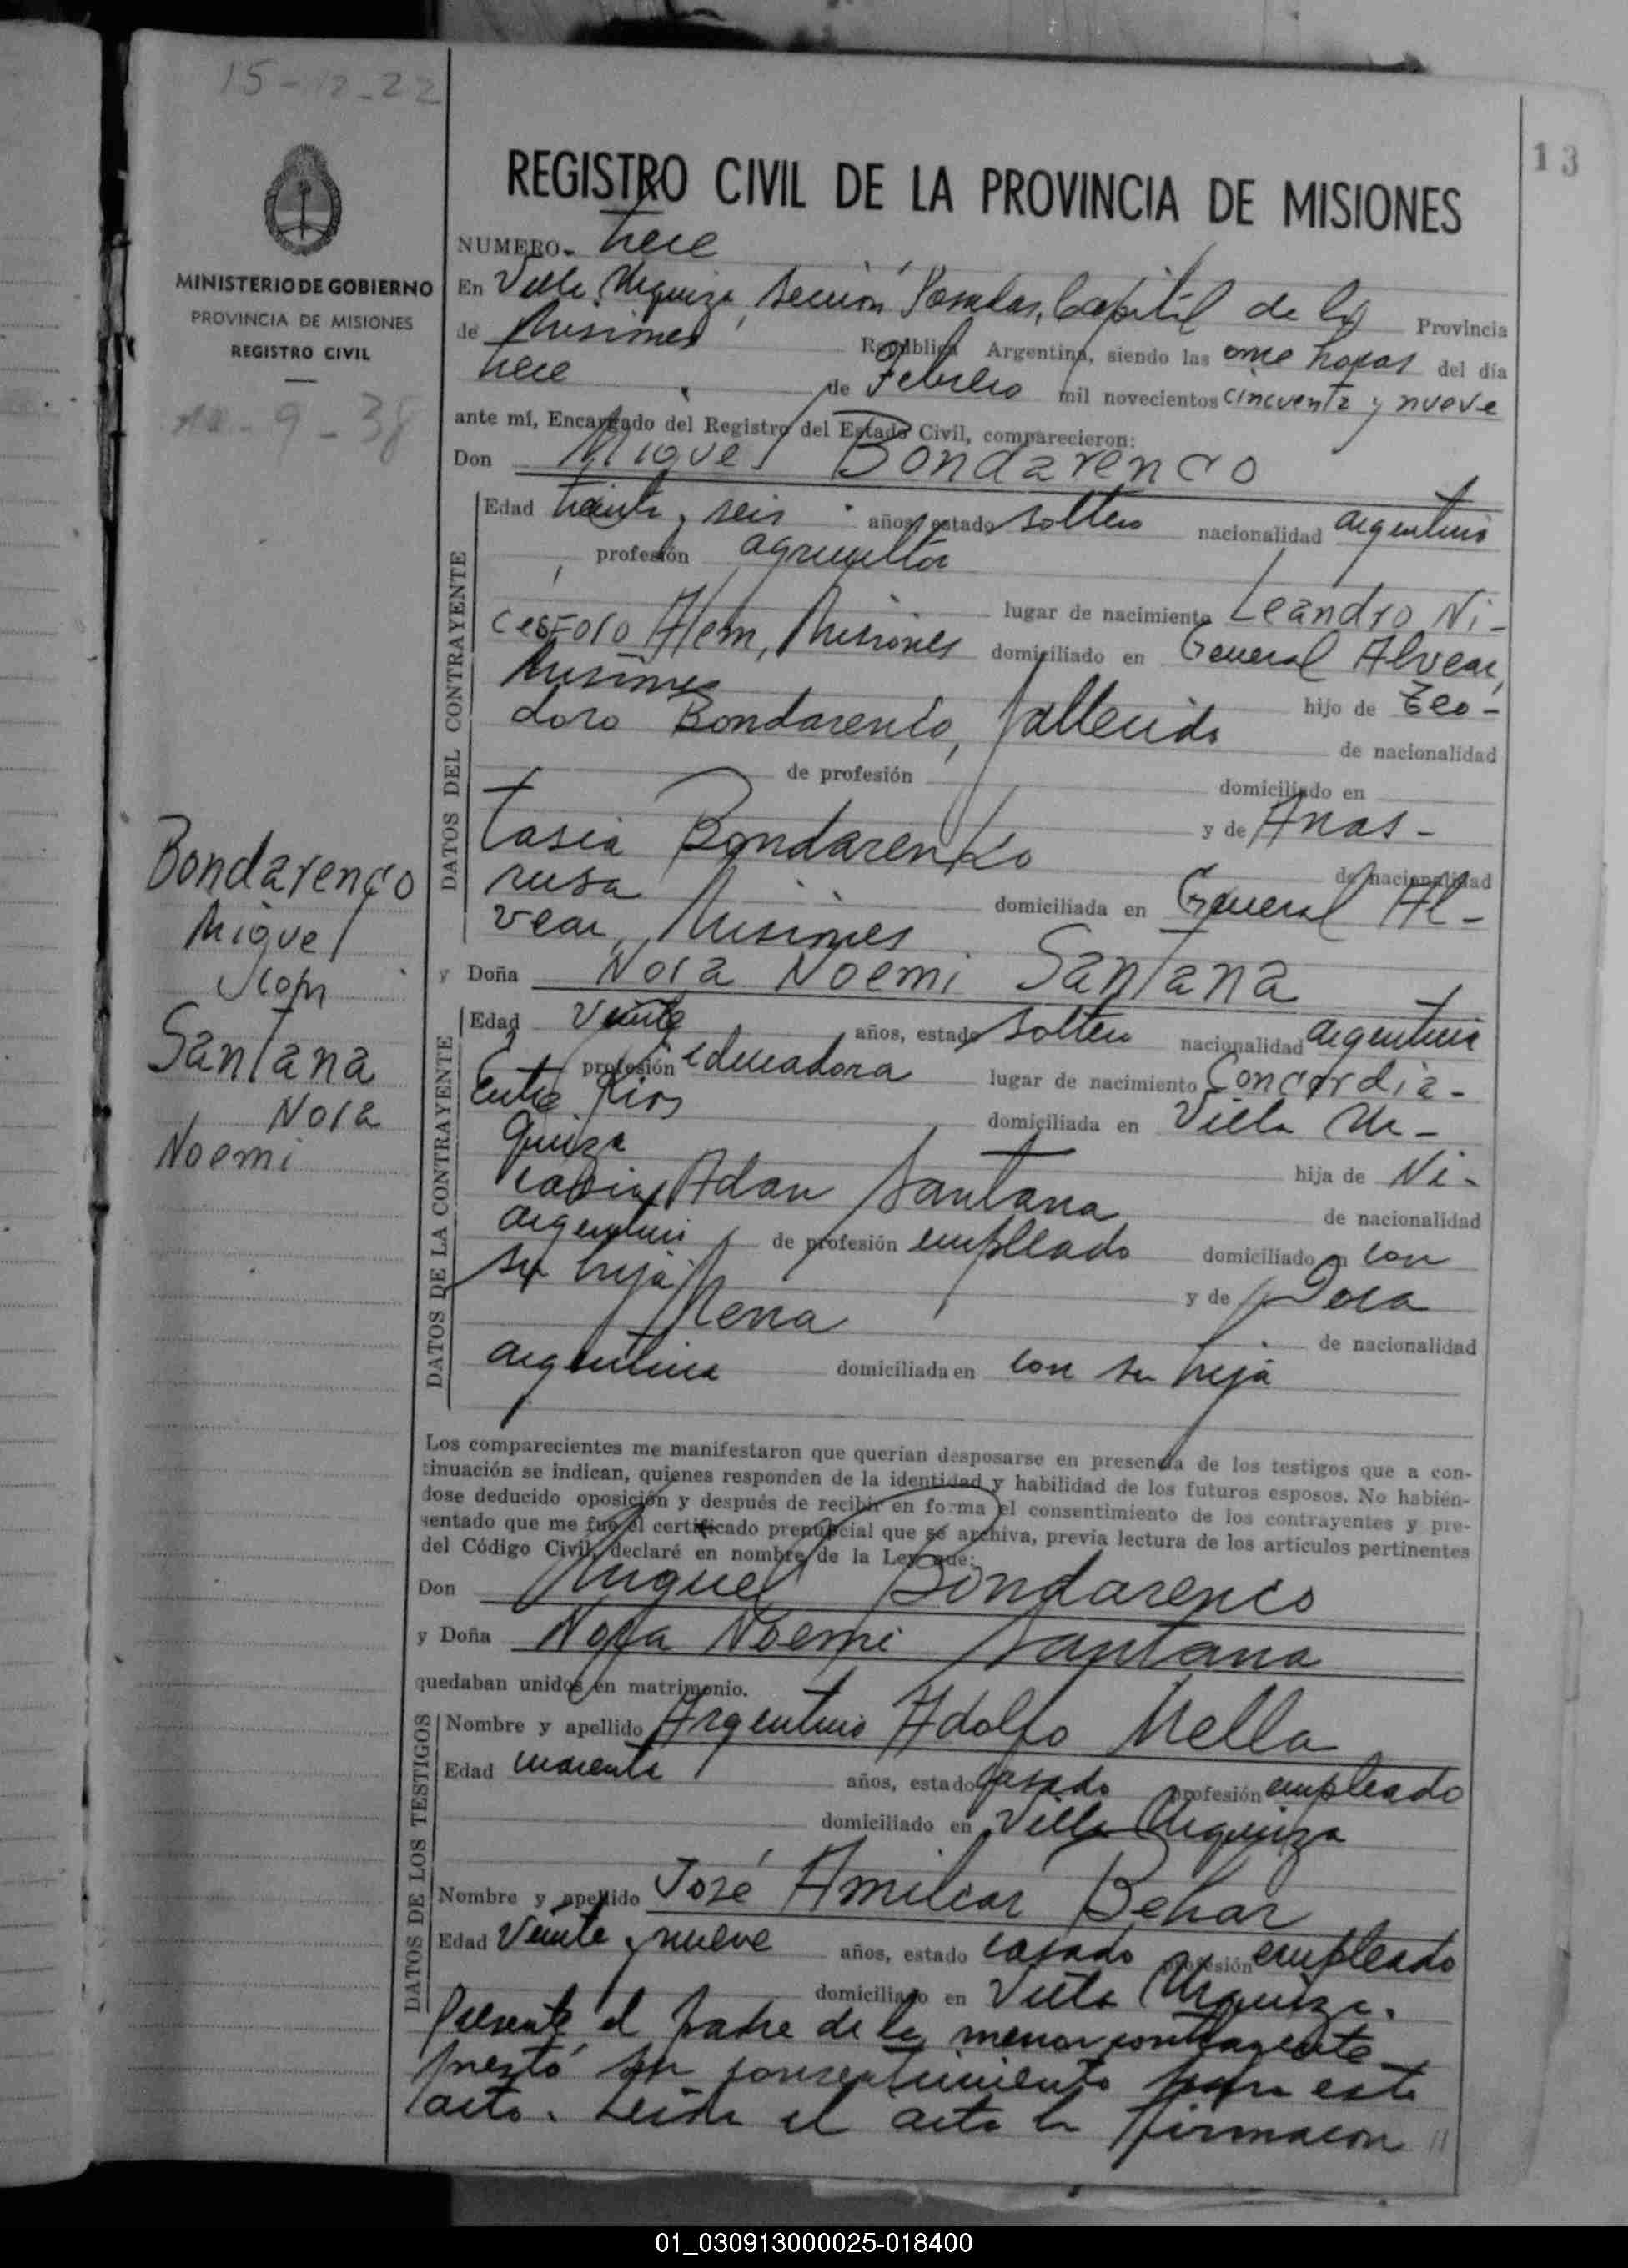 15-12-22
13
REGISTRO CIVIL DE LA PROVINCIA DE MISIONES
NUMERO- trece
MINISTERIO DE GOBIERNO
PROVINCIA DE MISIONES
REGISTRO CIVIL
12-9-38
En Villa Urquiza, Sección Posadas, Capital de la Provincia
de Misiones República Argentina, siendo las once horas del día
trece de Febrero mil novecientos cincuenta y nueve
ante mí, Encargado del Registro del Estado Civil, comparecieron:
Don Miguel Bondarenco
DATOS DEL CONTRAYENTE
Edad treinta y seis años, estado soltero nacionalidad argentino
profesión agricultor
lugar de nacimiento Leandro Ni-
ceforo Alem, Misiones domiciliado en General Alvear,
Misiones hijo de Teo-
doro Bondarenco, fallecido de nacionalidad
de profesión domiciliado en
y de Anas-
tasia Bondarenko de nacionalidad
rusa domiciliada en General Al-
vear, Misiones
Bondarenco
Miguel
con
Santana
Nora
Noemi
y Doña Nora Noemi Santana
DATOS DE LA CONTRAYENTE
Edad veinte años, estado soltera nacionalidad argentina
profesión educadora lugar de nacimiento Concordia-
Entre Rios domiciliada en Villa Ur-
quiza hija de Ni-
Adan Santana de nacionalidad
argentino de profesión empleado domiciliado en con
su hija y de Dora
Mena de nacionalidad
argentina domiciliada en con su hija
Los comparecientes me manifestaron que querían desposarse en presencia de los testigos que a con-
tinuación se indican, quienes responden de la identidad y habilidad de los futuros esposos. No habién-
dose deducido oposición y después de recibir en forma el consentimiento de los contrayentes y pre-
sentado que me fué el certificado prenupcial que se archiva, previa lectura de los artículos pertinentes
del Código Civil, declaré en nombre de la Ley que:
Don Miguel Bondarenco
y Doña Nora Noemi Santana
quedaban unidos en matrimonio.
DATOS DE LOS TESTIGOS
Nombre y apellido Argentino Adolfo Mella
Edad cuarenta años, estado casado profesión empleado
domiciliado en Villa Urquiza
Nombre y apellido José Amilcar Behar
Edad veinte y nueve años, estado casado profesión empleado
domiciliado en Villa Urquiza.
Presente el padre de la menor contrayente
prestó su consentimiento para este
acto. Leída el acta la firmaron //
01_030913000025-018400